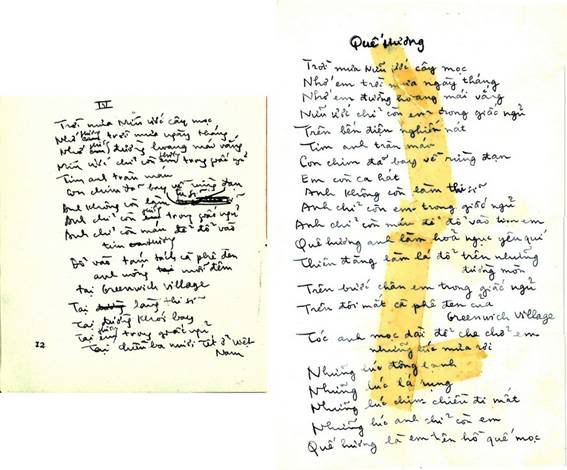 IV
Trời mưa Nữu Ước cây mọc
Nhớ trời mưa ngày tháng
Nhớ đường hoang mái vắng
Nữu Ước chỉ còn em trong giấc ngủ
Tim anh trầm máu
Con chim đã bay về rừng đạn
Anh không còn làm thi sĩ
Anh chỉ còn trong giấc ngủ
Anh chỉ còn máu để đổ vào
tim
Đổ vào tách cà phê đen
anh uống mỗi đêm
tại Greenwich Village
Tại làng thi sĩ
Tại đường khói bay
Tại trong giấc ngủ
Tại chiều ba mươi Tết ở Việt
Nam
12
Quê hương
Trời mưa Nữu Ước cây mọc
Nhớ em trời mưa ngày tháng
Nhớ em đường hoang mái vắng
Nữu Ước chỉ còn em trong giấc ngủ
Trên bến điện nghiền nát
Tim anh trầm máu
Con chim đã bay về rừng đạn
Em còn ca hát
Anh không còn làm thi sĩ
Anh chỉ còn em trong giấc ngủ
Anh chỉ còn máu để đổ vào tim em
Quê hương anh làm hoả ngục yêu quí
Thiên đàng làm lá đổ trên những
đường mòn
Trên bước chân em trong giấc ngủ
Trên đôi mắt cà phê đen của
Greenwich Village
Tóc anh mọc dài để che chở em
những lúc mưa rơi
Những lúc đông lạnh
Những lúc lá rụng
Những lúc chim chiều đi mất
Những lúc anh chỉ còn em
Quê hương là em hồ quế mọc